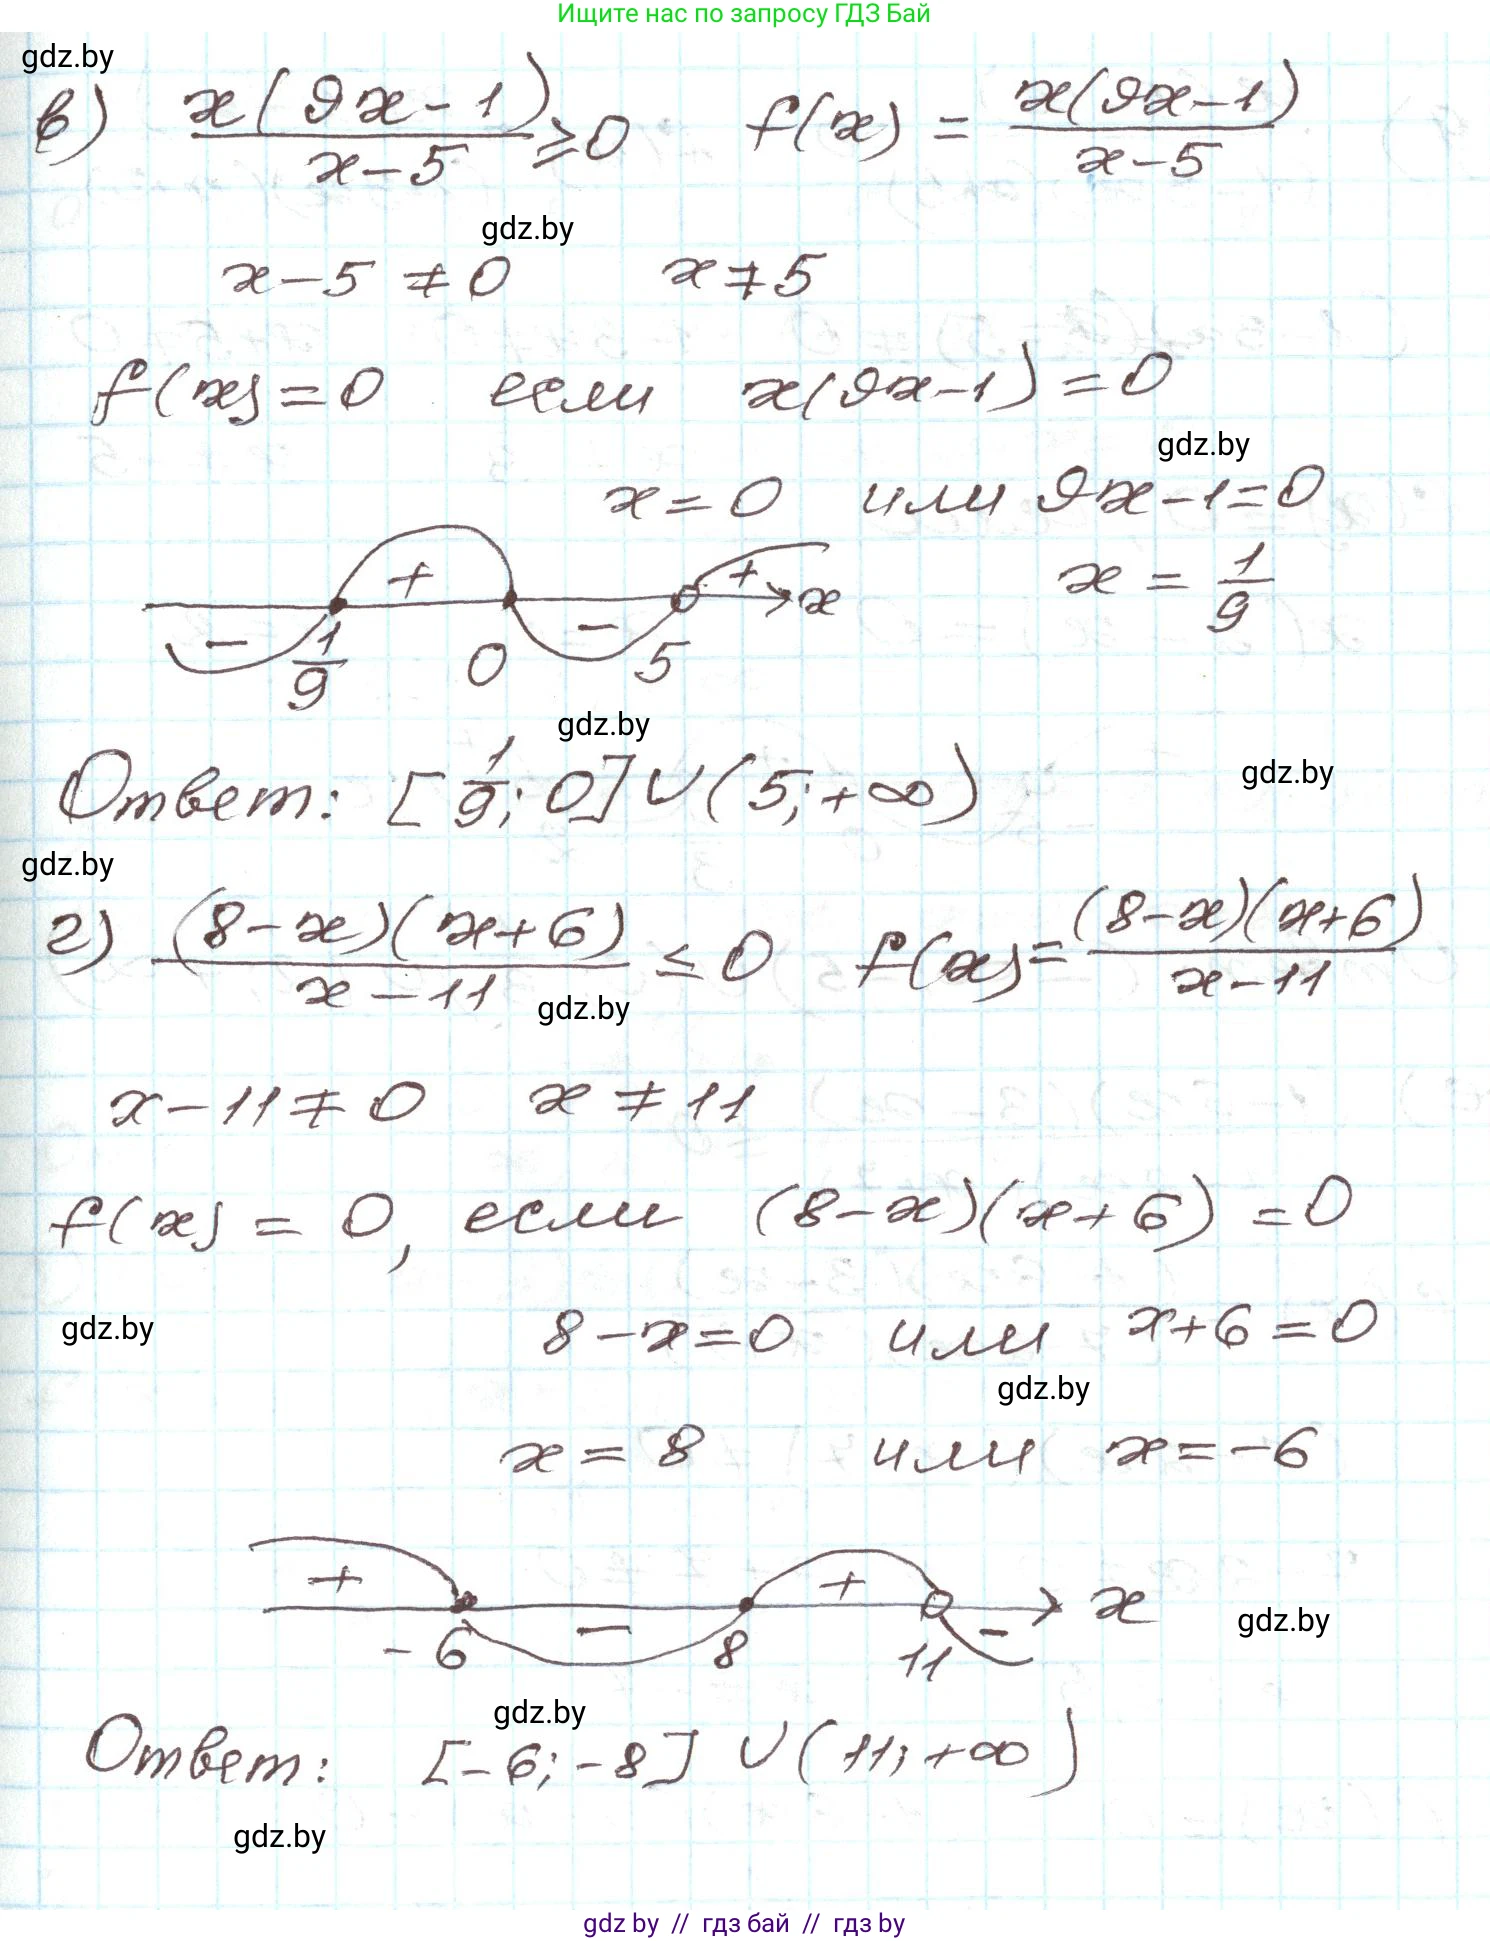 Ищите нас по запросу ГДЗ Бай
gdz.by
в) x(9x-1)/(x-5) ≥ 0   f(x) = x(9x-1)/(x-5)
gdz.by
x-5 ≠ 0   x ≠ 5
f(x) = 0 если x(9x-1) = 0
gdz.by
x = 0 или 9x-1=0
x = 1/9
- + - + x
1/9 0 5
gdz.by
gdz.by
Ответ: [1/9; 0] ∪ (5; +∞)
gdz.by
г) (8-x)(x+6)/(x-11) ≤ 0   f(x) = (8-x)(x+6)/(x-11)
gdz.by
x-11 ≠ 0   x ≠ 11
f(x) = 0, если (8-x)(x+6) = 0
gdz.by
8-x=0 или x+6=0
gdz.by
x = 8 или x = -6
+ - + - x
gdz.by
-6 8 11
gdz.by
Ответ: [-6; -8] ∪ (11; +∞)
gdz.by
gdz by // гдз бай // гдз by